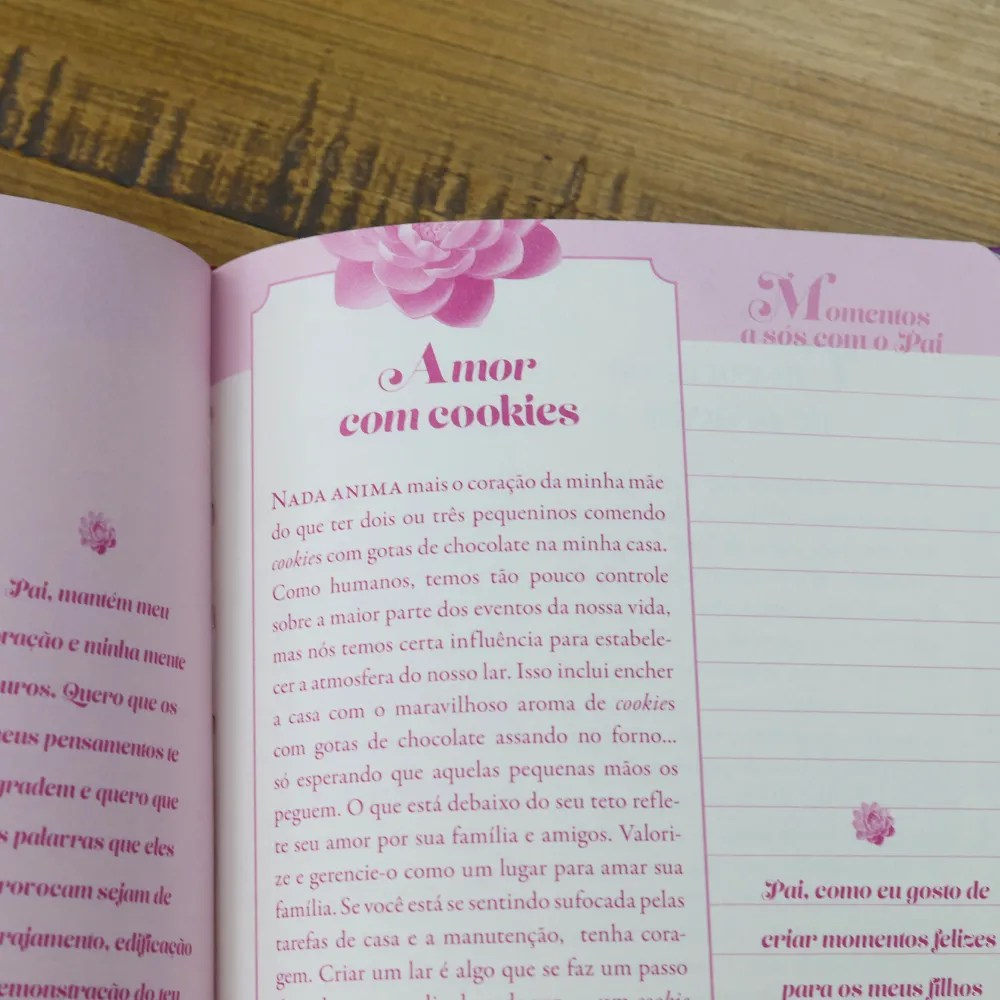 Pai, mantém meu
e minha mente
Quero que os
pensamentos te
e quero que
palavras que eles
sejam de
edificação
do teu
Amor
com cookies
NADA ANIMA mais o coração da minha mãe
do que ter dois ou três pequeninos comendo
cookies com gotas de chocolate na minha casa.
Como humanos, temos tão pouco controle
sobre a maior parte dos eventos da nossa vida,
mas nós temos certa influência para estabele-
cer a atmosfera do nosso lar. Isso inclui encher
a casa com o maravilhoso aroma de cookies
com gotas de chocolate assando no forno...
só esperando que aquelas pequenas mãos os
peguem. O que está debaixo do seu teto refle-
te seu amor por sua família e amigos. Valori-
ze e gerencie-o como um lugar para amar sua
família. Se você está se sentindo sufocada pelas
tarefas de casa e a manutenção, tenha cora-
gem. Criar um lar é algo que se faz um passo
cookie
Momentos
a sós com o Pai
Pai, como eu gosto de
criar momentos felizes
para os meus filhos